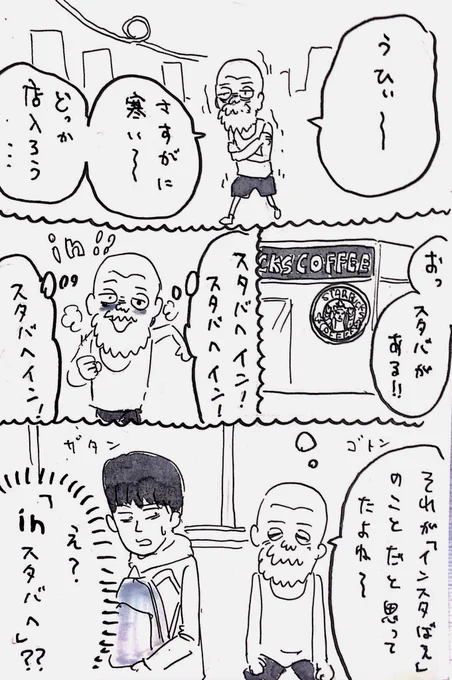 うひぃ〜
さすがに
寒い〜
どっか
店入ろう
…
おっ
スタバが
ある!!
CKS COFFEE
STARBUCKS
COFFEE
スタバへイン!
スタバへイン!
in!!
スタバへイン!
それが「インスタばえ」
のことだと思って
たよね〜
ゴトン
ガタン
え?
「in
スタバへ」??